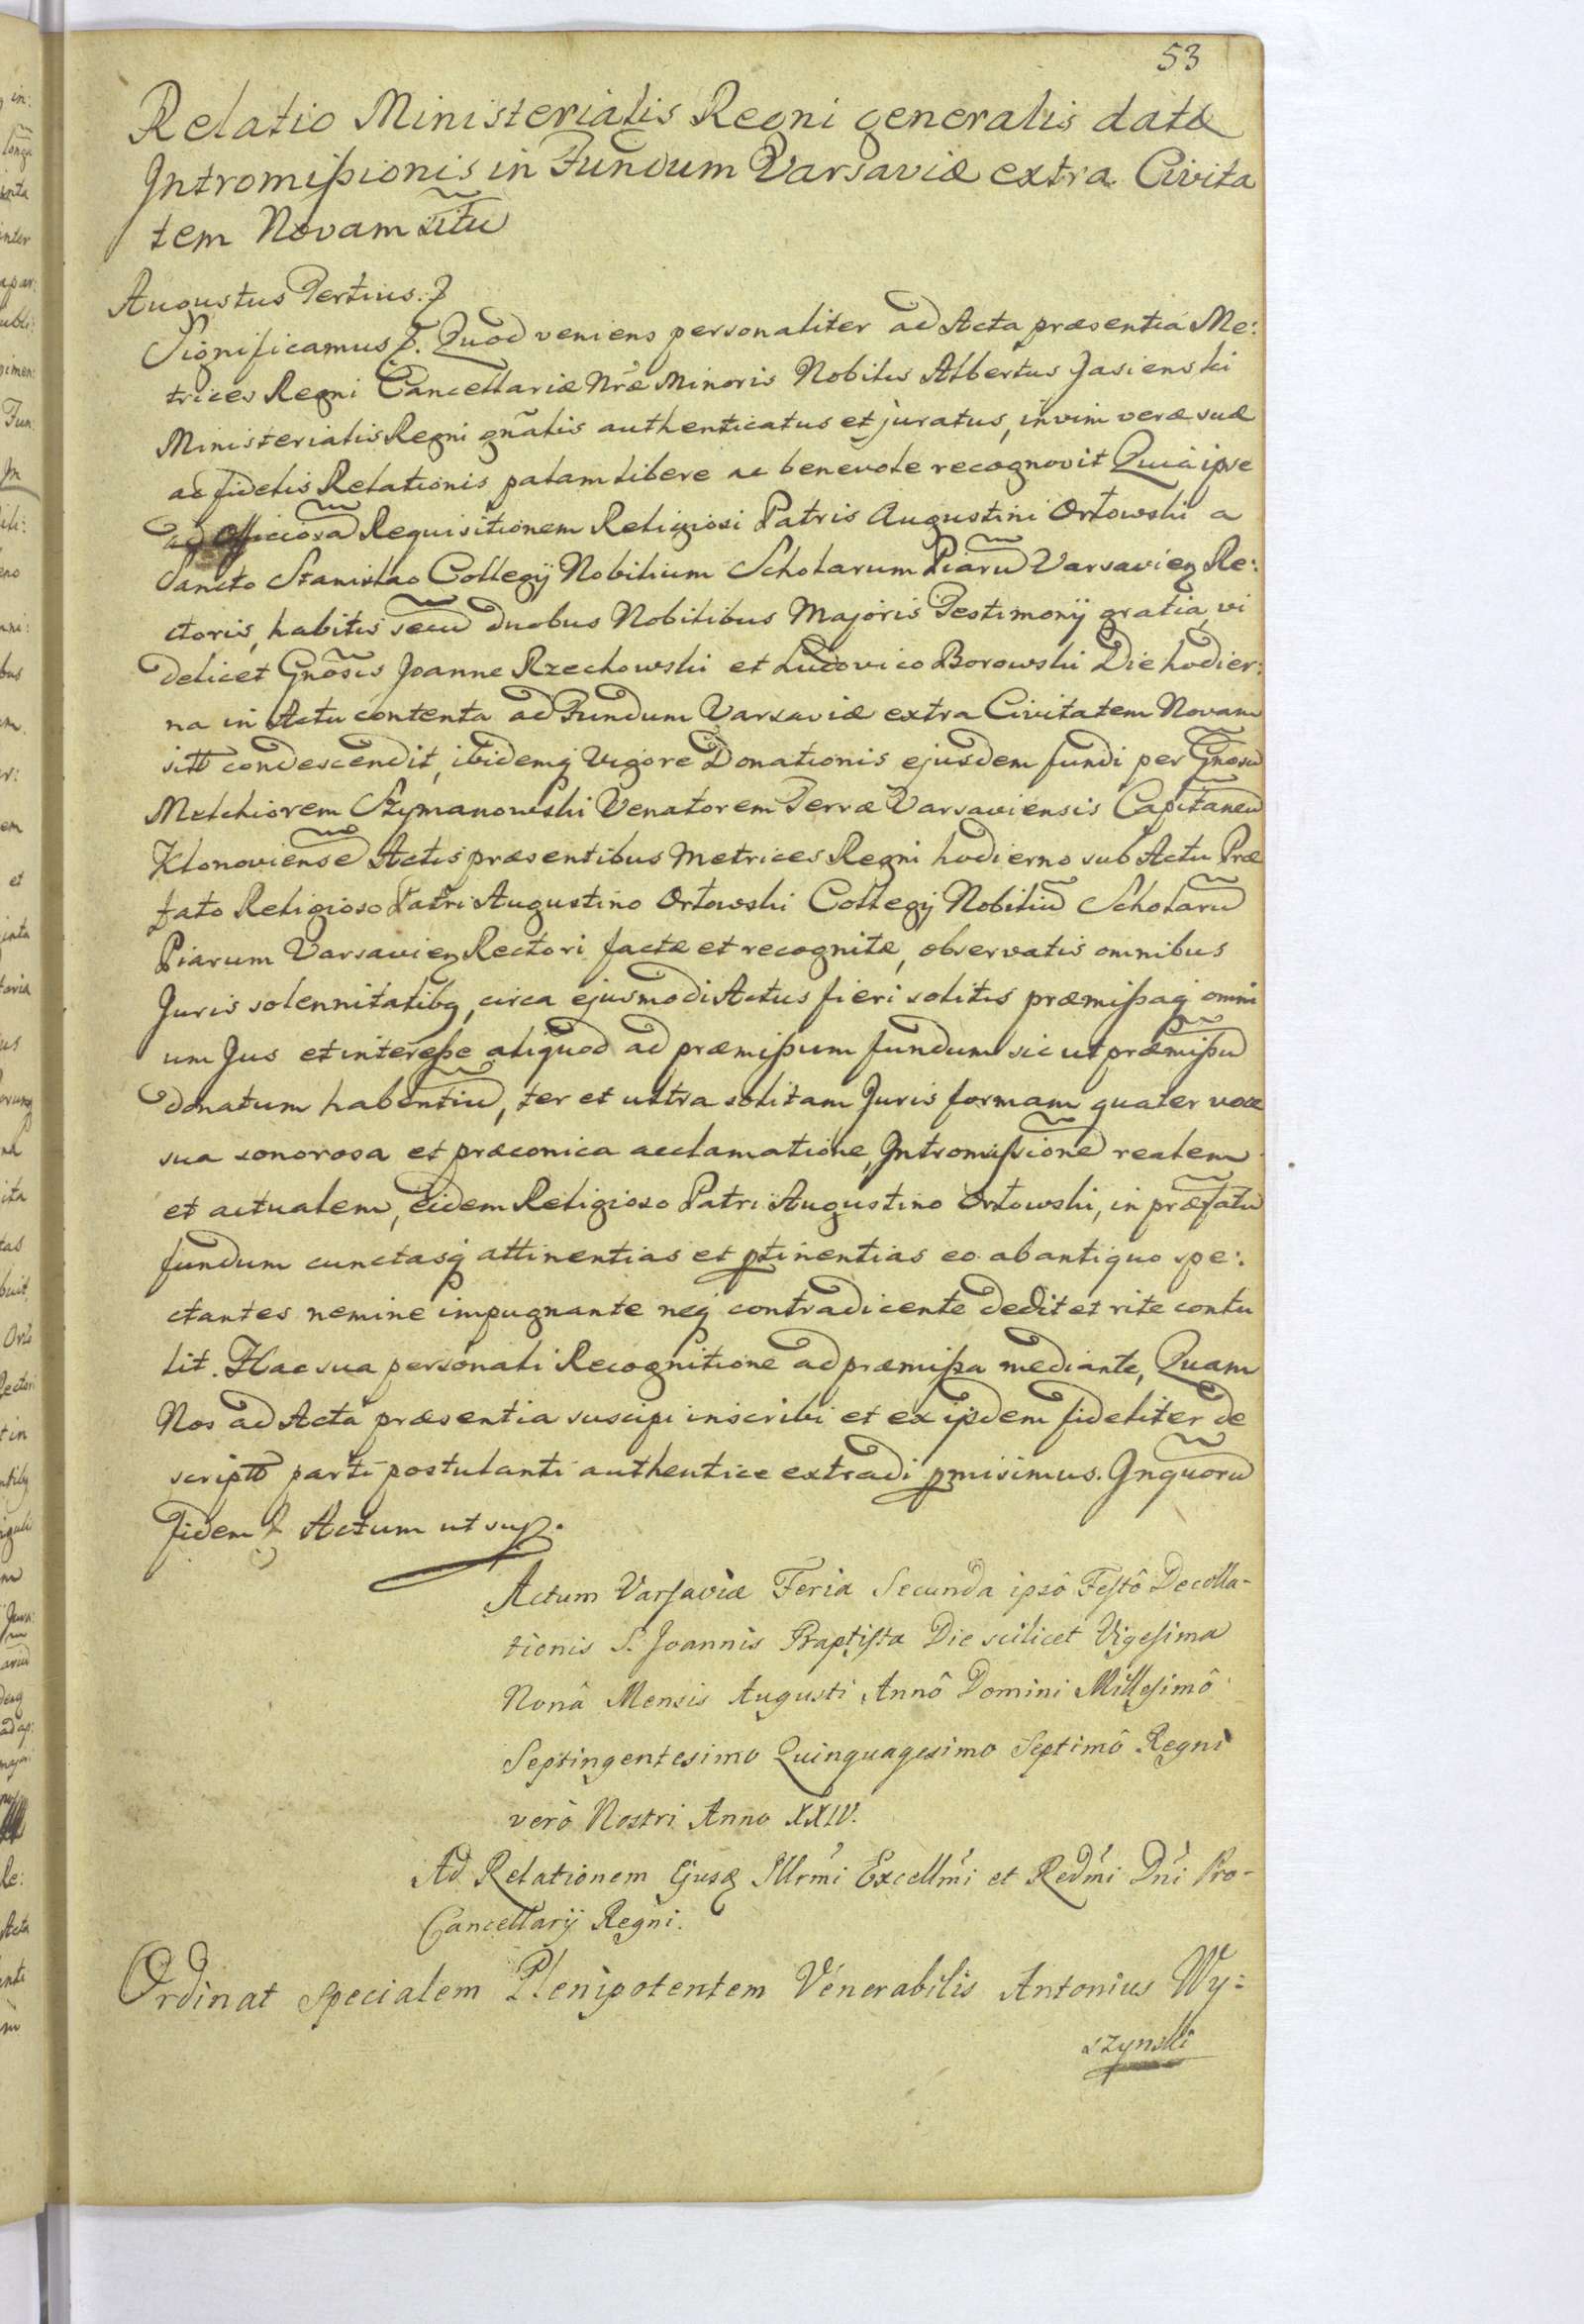 53
Relatio Ministerialis Regni generalis datæ
Intromißionis in Fundum Varsaviæ extra Civita
tem Novam sitũ
Augustus Tertius.
Significamus Quod veniens personaliter ad Acta præsentia Me:
trices Regni Cancellariæ Nræ Minoris Nobilis Albertus Jasienski
Ministerialis Regni gnãlis authenticatus et juratus, in vim veræ suæ
ac fidelis Relationis palam libere ac benevole recognovit Quia ipse
ad officiosã Requisitionem Religiosi Patris Augustini Orłowski a
Sancto Stanislao Collegij Nobilium Scholarum Piarũ Varsavien Re:
ctoris, habitis secũ duobus Nobilibus Majoris Testimonij gratia, vi
delicet Gnõsis Joanne Rzechowski et Ludovico Borowski Die hodier:
na in Actu contenta ad Fundum Varsaviæ extra Civitatem Novam
sitt condescendit, ibidemq vigore Donationis ejusdem fundi per Gnõsũ
Melchiorem Szymanowski Venatorem Terræ Varsaviensis Capitaneũ
Klonoviensẽ Actis præsentibus Metrices Regni hodierno sub Actu Præ
fato Religioso Patri Augustino Orłowski Collegij Nobiliũ Scholarũ
Piarum Varsavien Rectori factæ et recognitæ, observatis omnibus
Juris solennitatibq, circa ejusmodi Actus fieri solitis præmißaq omni
um Jus et intereße aliquod ad præmißum fundum sic ut præmißũ
donatum habentiũ, ter et ultra solitam Juris formam quater voce
sua sonorosa et præconica acclamatione, Intromißionẽ realem
et actualem, eidem Religioso Patri Augustino Orłowski, in præfatũ
fundum cunctasq attinentias et ptinentias eo ab antiquo spe:
ctantes nemine impugnante neq contradicente dedit et rite contu
lit. Hac sua personali Recognitione ad præmißa mediante, Quam
Nos ad Acta præsentia suscipi inscribi et ex ijsdem fideliter de
scriptt parti postulanti authentice extradi pmisimus. In quorũ
fidem Actum ut sup.
Actum Varsaviæ Feria Secunda ipsô Festô Decolla-
tionis S. Joannis Baptista Die scilicet Vigesima
Nonâ Mensis Augusti Annô Domini Millesimô
Septingentesimo Quinquagesimo Septimô Regni
verò Nostri Anno XXIV.
Ad Relationem Ejusq Illrmi Excellmi et Redmi Dni Pro-
Cancellarij Regni.
Ordinat specialem Plenipotentem Venerabilis Antonius Wy=
szynski